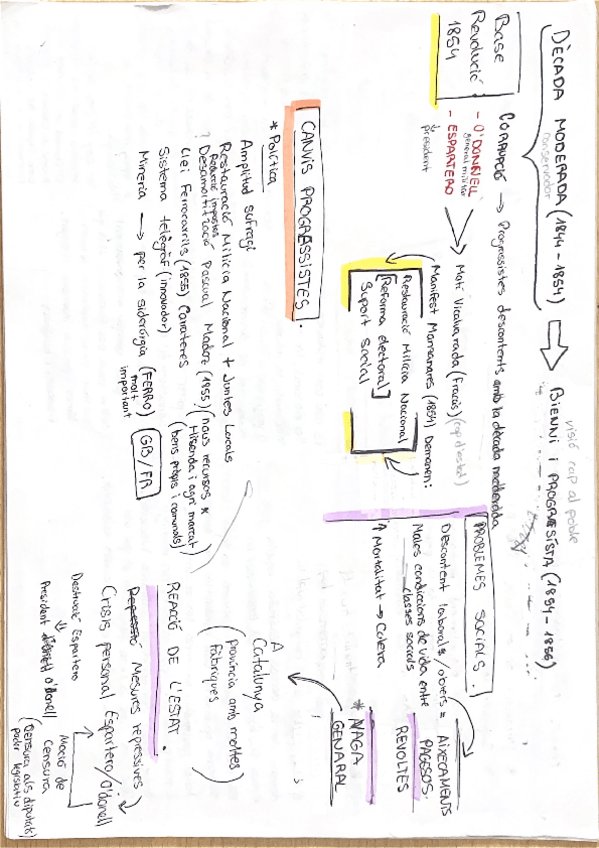 DÈCADA MODERADA (1844 - 1854)
conservador
visió cap al poble
BIENNI I PROGRESISTA (1854 - 1856)
Base
Revolució
1854
CORRUPCIÓ → Progressistes descontents amb la dècada moderada
- O'DONNELL
general militar
- ESPARTERO
president
Motí Vicalvarada (Fracàs) (cop d'estat)
Manifest Manzanares (1854) Demanen:
Restauració Milícia Nacional
[Reforma electoral]
Suport social
CANVIS PROGRESSISTES.
* Política
Amplitud sufragi
Restauració Milícia Nacional + Juntes Locals
? Desamortització Pascual Madoz (1855) (nous recursos x
Hisenda i agri marcat)
(bens propis i comunals)
Llei Ferrocarrils (1855) Carreteres
Sistema telègraf (innovador)
Mineria → per la siderúrgia (FERRO)
molt
important
GB / FR
PROBLEMES SOCIALS.
Descontent laborals / obrers = AIXECAMENTS
PAGESOS.
Males condicions de vida entre
classes socials
REVOLTES
↑ Mortalitat → Colera
* VAGA
GENERAL
A
Catalunya
(província amb moltes
Fàbriques)
REACCIÓ DE L'ESTAT.
Repressió Mesures repressives
Crisis personal Espartero/O'donell
Destitució Espartero
President O'donell
Moció de
Censura
(Censura als diputats)
poder
legislatiu